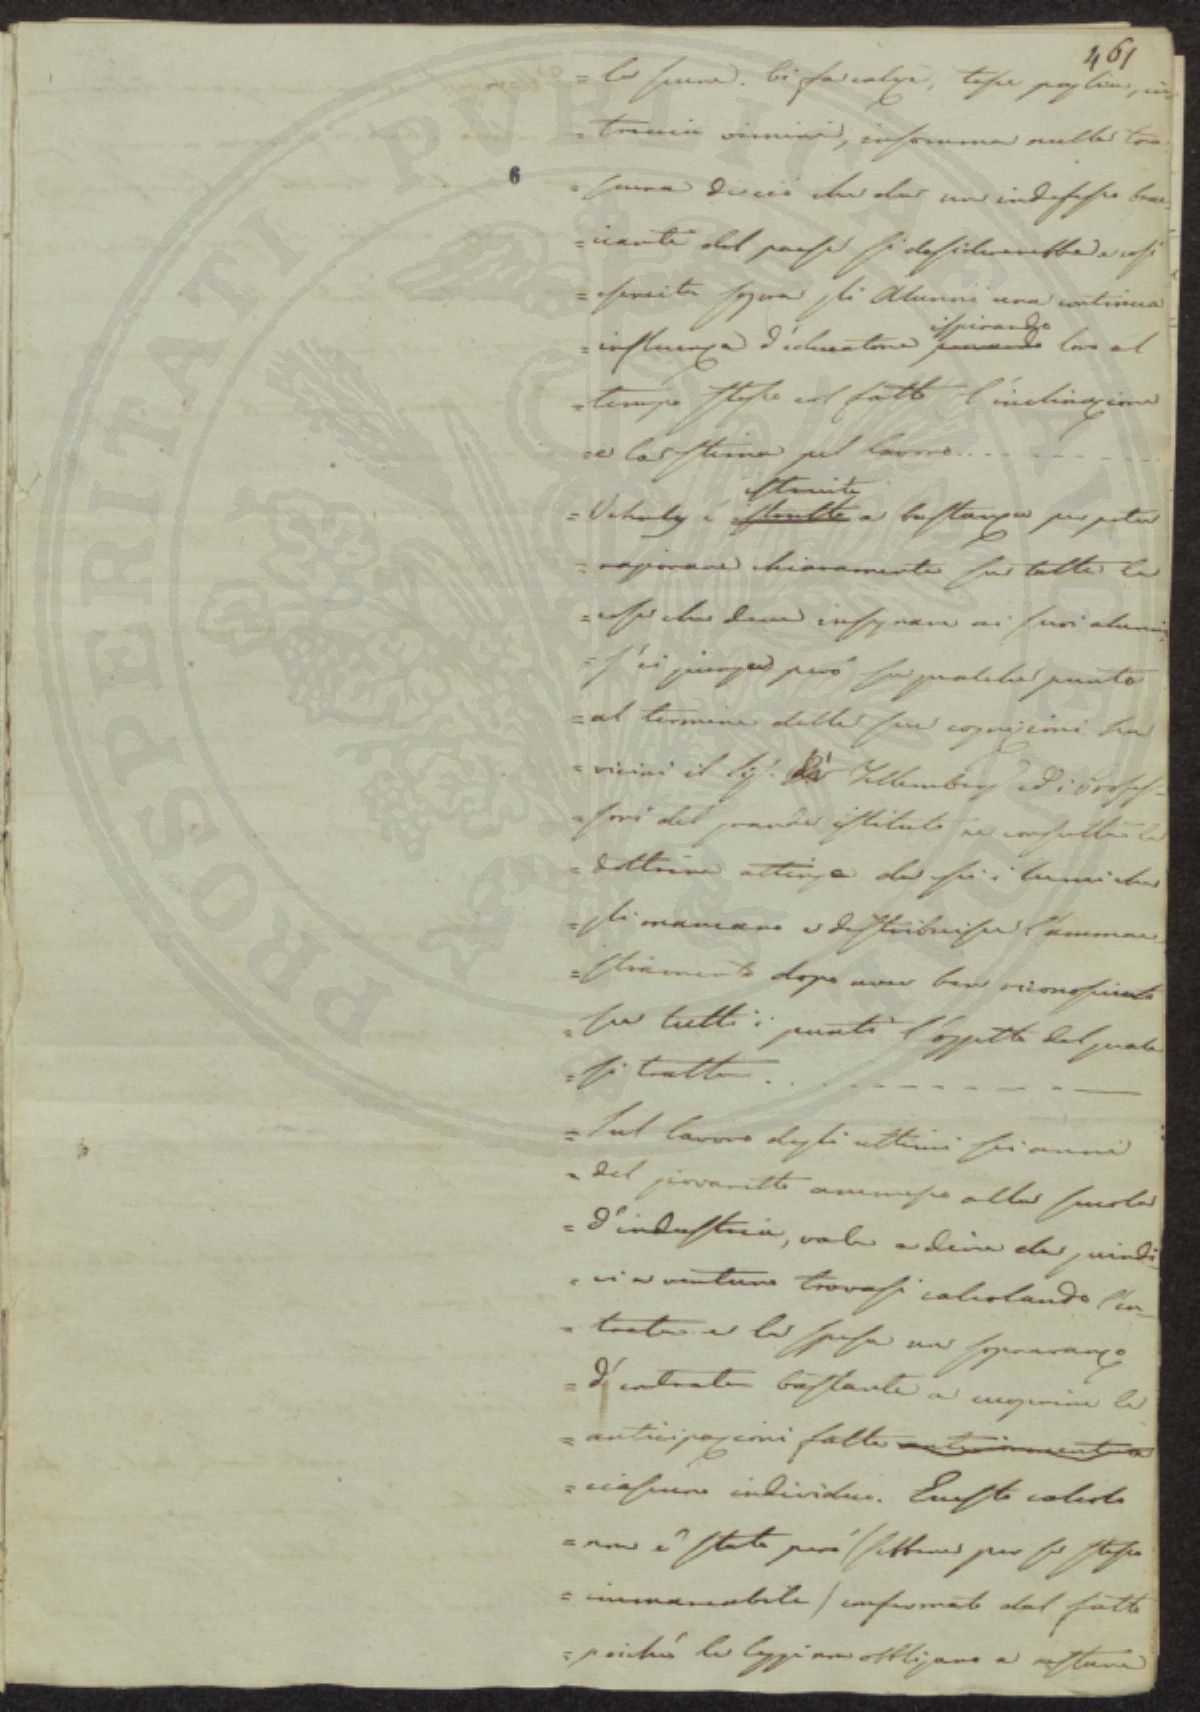 461
= le scuna. Ei fa calze, tesse paglia, in-
= treccia vimini, insomma nulla tra-
6
= scura di ciò che da un indefesso brac-
= ciante del paese si desidererebbe e così
= esercita sopra gli Alunni una continua
= influenza d'educatore ispirando loro al
= tempo stesso col fatto l'inclinazione
= e la stima pel lavoro
= Vehrly è istruito a bastanza per poter
= ragionare chiaramente su tutte le
= cose che deve insegnare ai suoi alunni,
= s'ei giunge però su qualche punto
= al termine delle sue cognizioni ha
= vicini il Sig. di Fellemberg ed i Profes-
= sori del grande istituto ne consulta la
= dottrina attinge da essi i lumi che
= gli mancano e distribuisce l'ammae-
= stramento dopo aver ben riconosciuto
= su tutti i punti l'oggetto del quale
= si tratta
= Sul lavoro degli ultimi sei anni
= del giovanetto ammesso alla scuola
= d'industria, vale a dire da quindi-
= ci a ventuno trovasi calcolando l'en-
= trata e la spesa un sopravanzo
= d'entrata bastante a cuoprire le
= anticipazioni fatte anteriormente a
= ciascuno individuo. Questo calcolo
= non è stato però (sebbene per se stesso
= immancabile) confermato dal fatto
= poichè le leggi non obbligano a restare
PROSPERITATI PVBLICAE